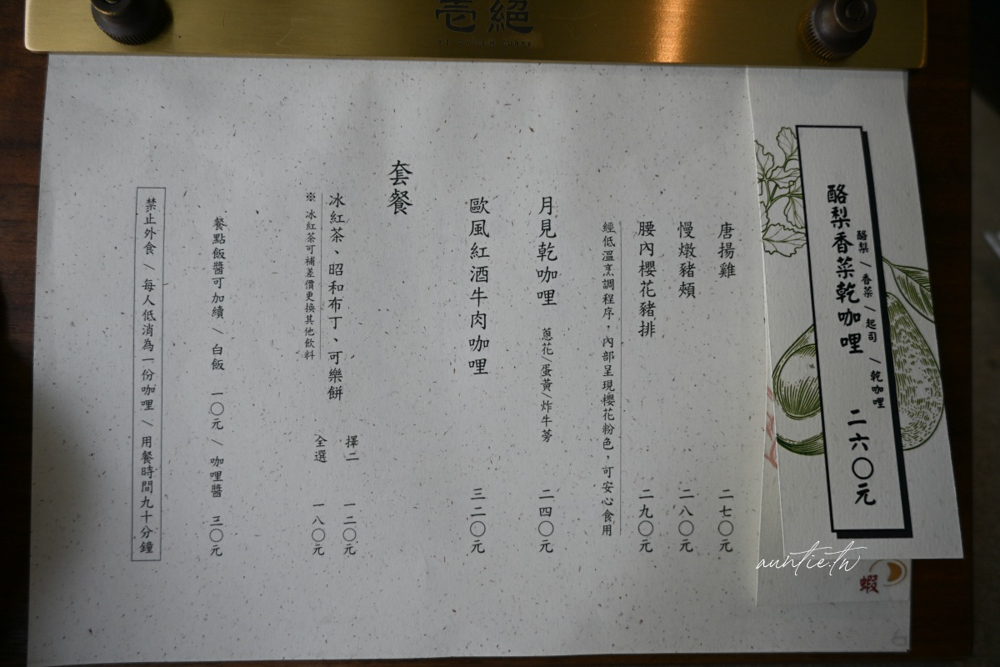 壱絕
酪梨香菜乾咖哩 二六〇元
酪梨 / 香菜 / 起司 / 乾咖哩
唐揚雞 二七〇元
慢燉豬頰 二八〇元
腰內櫻花豬排 二九〇元
經低溫烹調程序,內部呈現櫻花粉色,可安心食用
月見乾咖哩 蔥花/蛋黃/炸牛蒡 二四〇元
歐風紅酒牛肉咖哩 三二〇元
套餐
冰紅茶、昭和布丁、可樂餅 擇二 一二〇元
全選 一八〇元
※ 冰紅茶可補差價更換其他飲料
餐點飯醬可加續 / 白飯 一〇元 / 咖哩醬 三〇元
禁止外食 / 每人低消為一份咖哩 / 用餐時間九十分鐘
蝦
auntie.tw